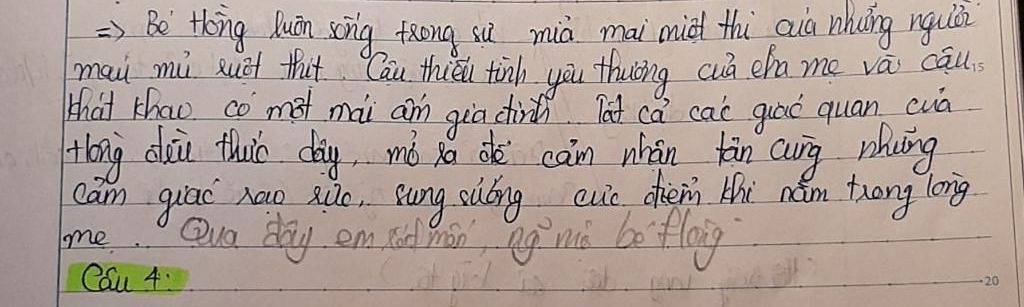 => Bé Hồng luôn sống trong sự mỉa mai miệt thị của những người
máu mủ ruột thịt. Cậu thiếu tình yêu thương của cha mẹ và cậu
khát khao có một mái ấm gia đình. Tất cả các giác quan của
Hồng đều thức dậy, mở ra để cảm nhận tận cùng những
cảm giác xao xúc, sung sướng cực điểm khi nằm trong lòng
mẹ. Qua đây em, bé Hồng
Câu 4: